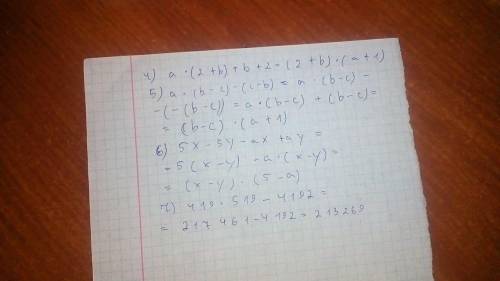 4) a · (2 + b) + b + 2 = (2 + b) · (a + 1)
5) a · (b - c) - (c - b) = a · (b - c) -
- (- (b - c)) = a · (b - c) + (b - c) =
= (b - c) · (a + 1)
6) 5x - 5y - ax + ay =
= 5 (x - y) - a · (x - y) =
= (x - y) · (5 - a)
7) 419 · 519 - 4192 =
= 217 461 - 4192 = 213269